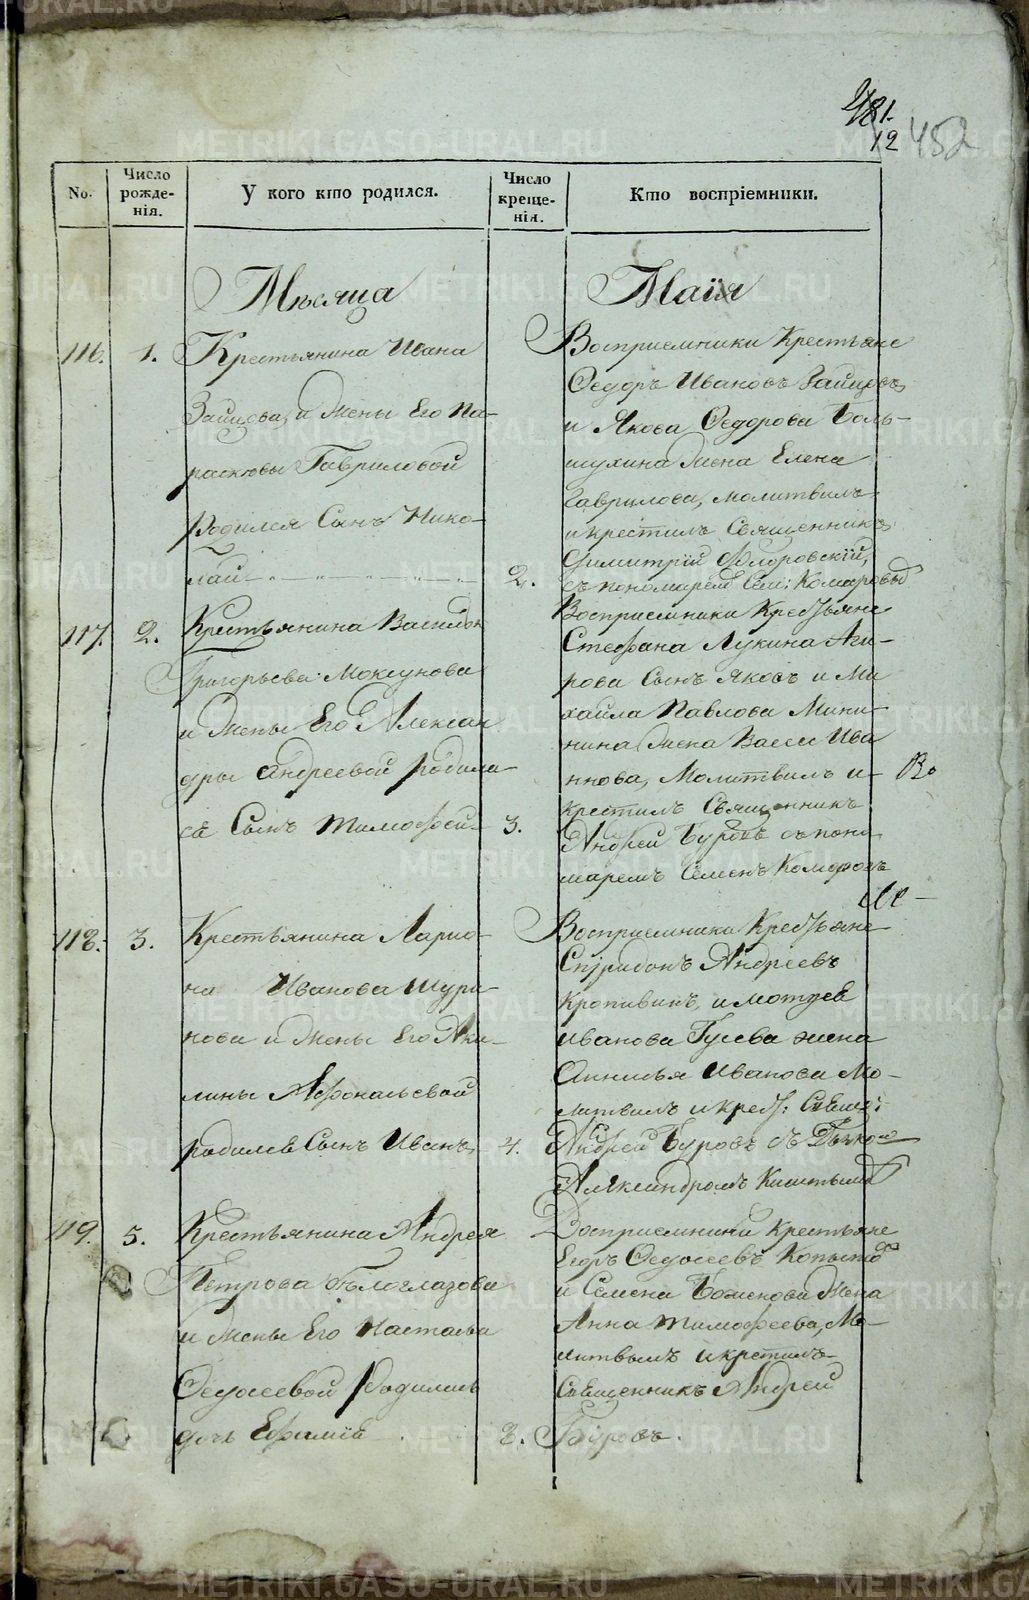 481.
12 452
No.
Число рожде-нія.
У кого кто родился.
Число креще-нія.
Кто воспріемники.
Мѣсяца
Маія
116. 1.
Крестьянина Ивана
Зайцова, и жены Его Па-
расковьи Гавриловой
родился Сынъ Нико-
лай
2.
Воспріемники Крестьяне
Ѳедоръ Ивановъ Зайцовъ
и Якова Ѳедорова Боль-
шухина жена Елена
Гаврилова, молитвилъ
и крестилъ Священникъ
Димитрій Флоровскій,
съ пономаремъ Сем: Комаровы
117. 2.
Крестьянина Василья
Григорьева Моксунова
и жены Его Алексан
дры Андреевой родил
ся Сынъ Тимофей
3.
Воспріемники Крестьяне
Стефана Лукина
Сынъ Яковъ и Ми
хайла Павлова Мини-
нина жена Васса Ива
нова, Молитвилъ и
Во
крестилъ Священникъ
Андрей Буровъ съ поно
маремъ Семенъ Комаровъ
118. 3.
Крестьянина Ларио-
на Иванова Шури-
нова и жены Его Аки-
лины Афонасьевой
родился Сынъ Иванъ
4.
Воспріемники Крестьяне
Спиридонъ Андреевъ
Кропивинъ, и
Иванова Гусева жена
Иванова Мо-
литвилъ и крест: Свящ:
Андрей Буровъ съ
Александромъ
119. 5.
Крестьянина Андрея
Петрова Бѣлоглазова
и жены Его Настасьи
Ѳедосеевой родилась
дочь Ефимія
8.
Воспріемники Крестьяне
Егоръ Ѳедосеевъ
и Семена Боженова жена
Анна Тимофеева, Мо-
литвилъ и крестилъ
Священникъ Андрей
Буровъ.
METRIKI.GASO-URAL.RU